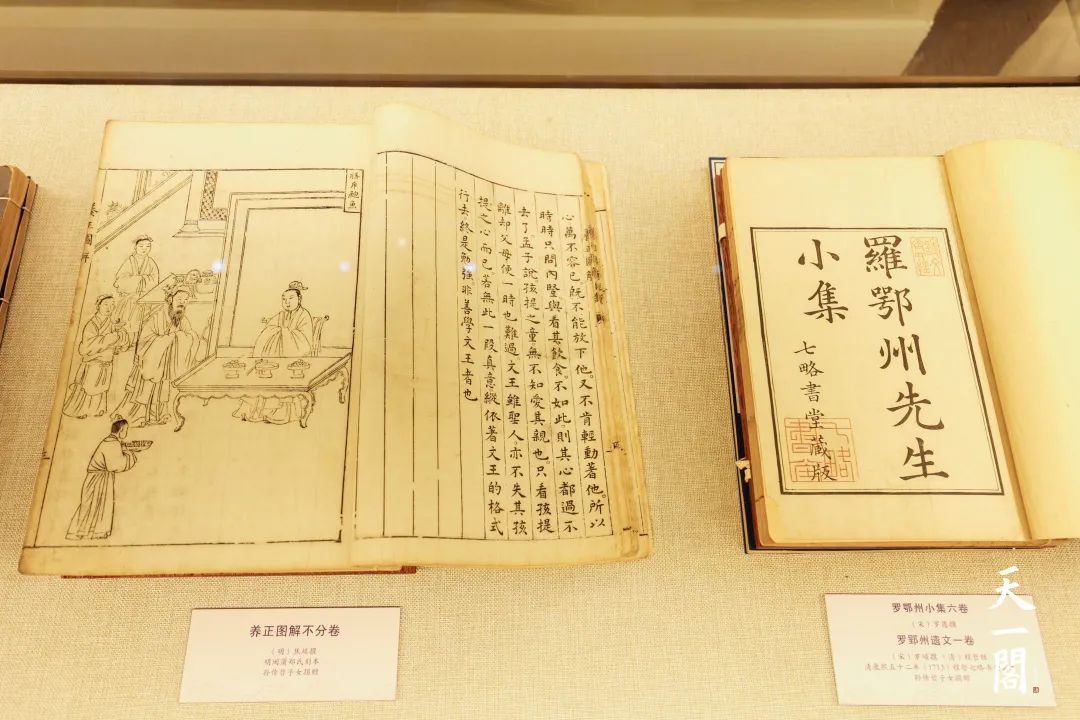 膳斥鮑魚
養正圖解
心萬不容已既不能放下他。又不肯輕動著他。所以
時時只問内竪與看其飲食。不如此。則其心都過不
去了。孟子說孩提之童無不知愛其親也。只看孩提
離却父母便一時也難過文王雖聖人。亦不失其孩
提之心而已。若無此一段真意縱依著文王的格式
行去終是勉強非善學文王者也
羅鄂州先生
小集
七略書堂藏版
养正图解不分卷
（明）焦竑撰
明闵萧郑氏刻本
孙传哲子女捐赠
罗鄂州小集六卷
（宋）罗愿撰
罗郢州遗文一卷
（宋）罗颂撰（清）程哲辑
清康熙五十二年（1713）程哲七略书
孙传哲子女捐赠
天一閣